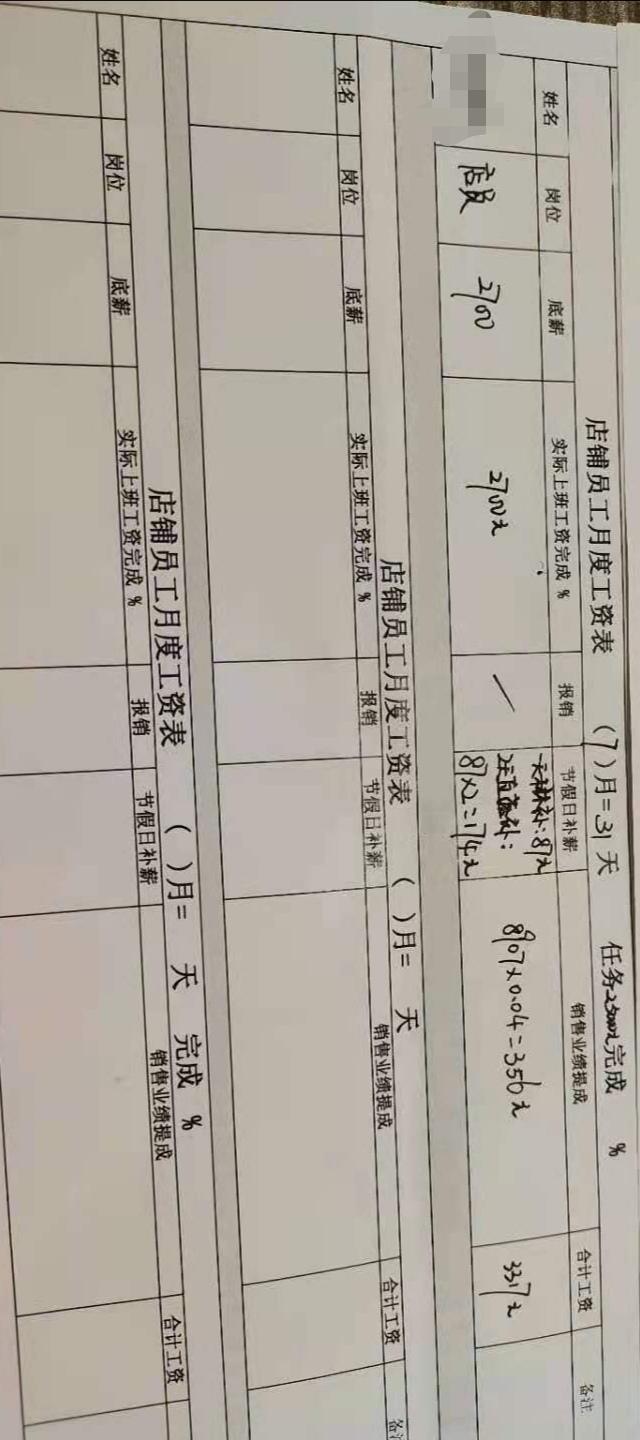 店铺员工月度工资表 (7)月=31天 任务25000元完成 %
姓名 岗位 底薪 实际上班工资完成% 报销 节假日补薪 销售业绩提成 合计工资 备注
店员 2700 2700元 / 一天补:87元 8907×0.04=356元 3317元
2天
87×2=174元
店铺员工月度工资表 ( )月= 天
姓名 岗位 底薪 实际上班工资完成% 报销 节假日补薪 销售业绩提成 合计工资 备注
店铺员工月度工资表 ( )月= 天 完成 %
姓名 岗位 底薪 实际上班工资完成% 报销 节假日补薪 销售业绩提成 合计工资